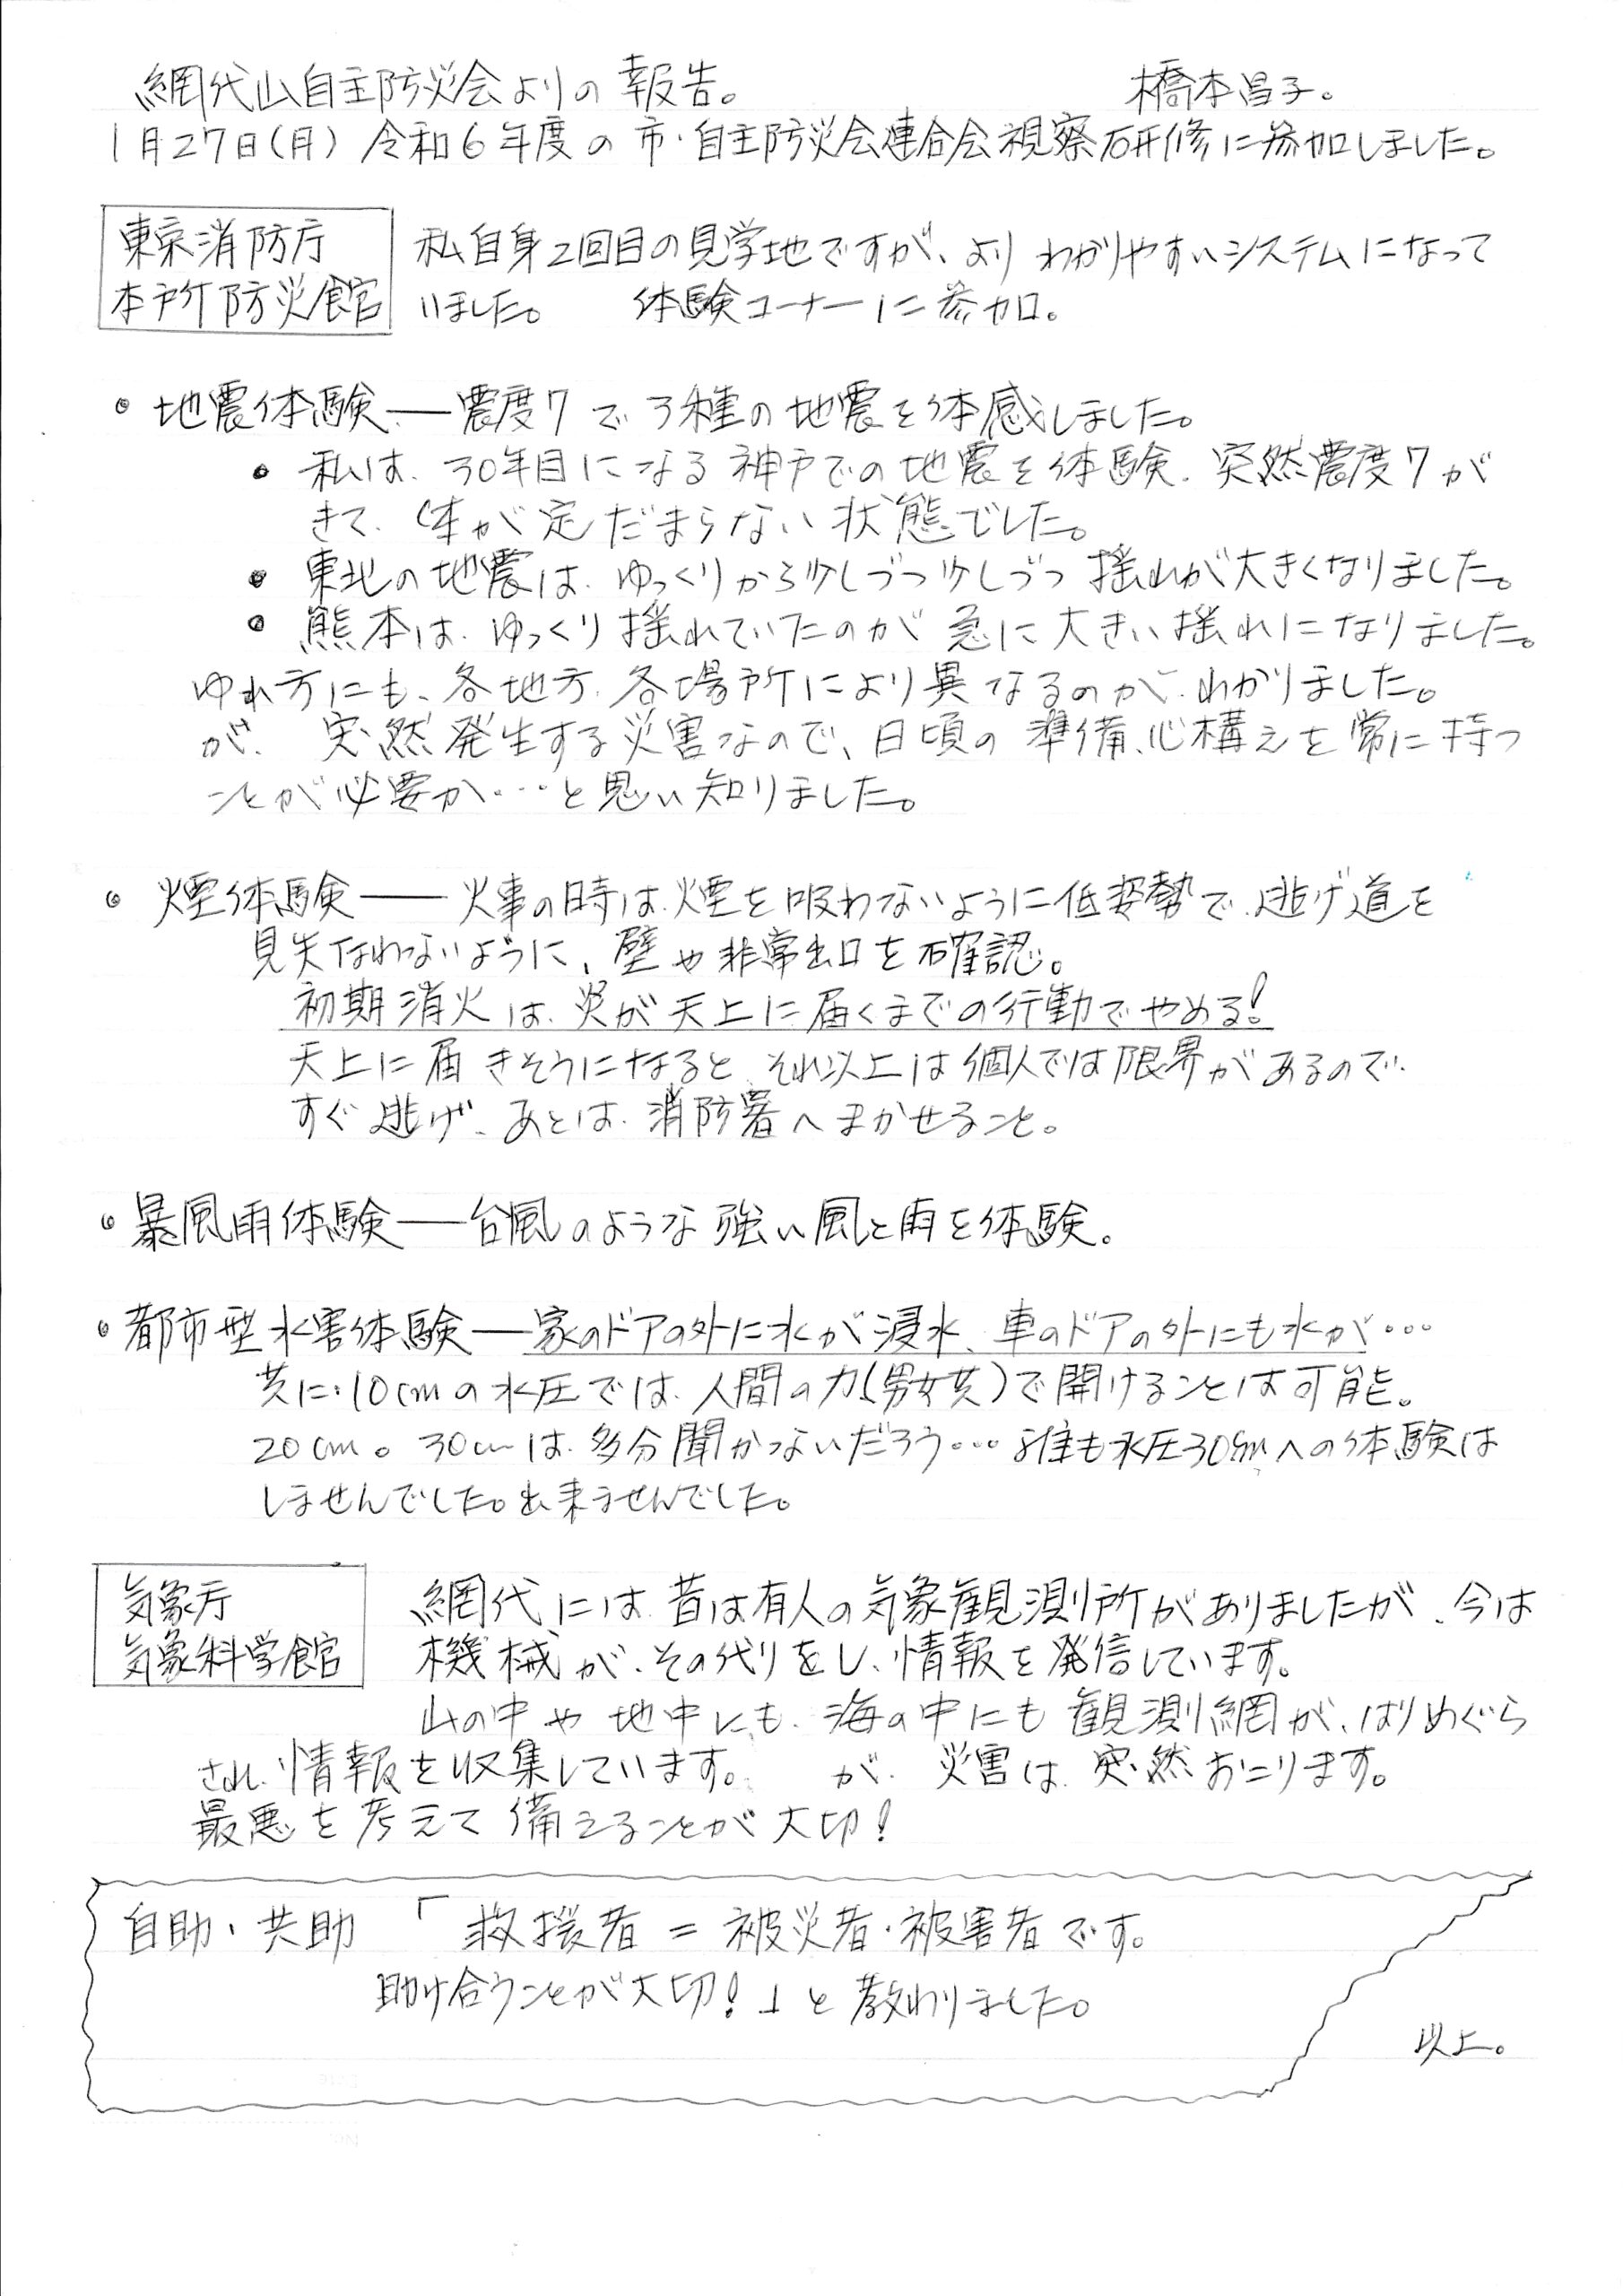 網代山自主防災会よりの報告。 橋本昌子。
1月27日(月) 令和6年度の市・自主防災会連合会視察研修に参加しました。
東京消防庁
本所防災館
私自身2回目の見学地ですが、よりわかりやすいシステムになって
いました。 体験コーナーに参加。
・地震体験――震度7で3種の地震を体感しました。
・私は、30年目になる神戸での地震を体験、突然震度7が
きて、体が定だまらない状態でした。
・東北の地震は、ゆっくりから少しづつ少しづつ揺れが大きくなりました。
・熊本は、ゆっくり揺れていたのが急に大きい揺れになりました。
ゆれ方にも、各地方、各場所により異なるのが、わかりました。
が、突然発生する災害なので、日頃の準備、心構えを常に持つ
ことが必要か…と思い知りました。
・煙体験――火事の時は、煙を吸わないように低姿勢で、逃げ道を
見失なわないように、壁や非常出口を確認。
初期消火は、炎が天上に届くまでの行動でやめる!
天上に届きそうになると、それ以上は個人では限界があるので、
すぐ逃げ、あとは、消防署へまかせること。
・暴風雨体験――台風のような強い風と雨を体験。
・都市型水害体験――家のドアの外に水が浸水、車のドアの外にも水が…
共に:10cmの水圧では、人間の力(男女共)で開けることは可能。
20cm。30cmは、多分開かつないだろう…誰も水圧30cmへの体験は
しませんでした。出来ませんでした。
気象庁
気象科学館
網代には、昔は有人の気象観測所がありましたが、今は
機械が、その代りをし、情報を発信しています。
山の中や地中にも、海の中にも観測網が、はりめぐら
され、情報を収集しています。 が、災害は、突然おこります。
最悪を考えて備えることが大切!
自助・共助 「救援者=被災者・被害者です。
助け合うことが大切!」と教わりました。
以上。